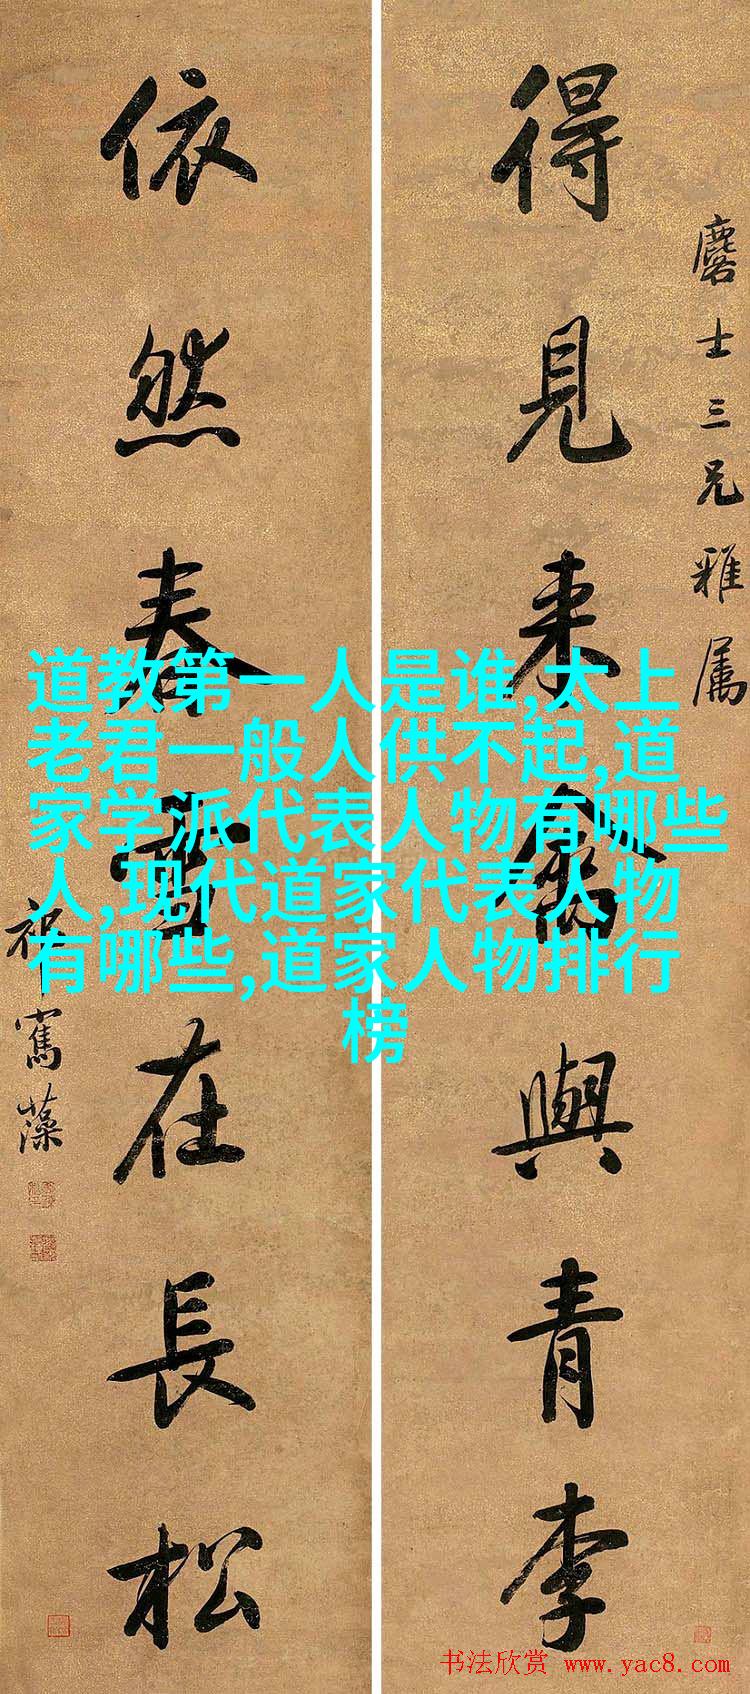 麐士三兄雅属
得見来禽與青李
依然春雪在長松
祁寯藻
道教第一人是谁,太上
老君一般人供不起,道
家学派代表人物有哪些
人,现代道家代表人物
有哪些,道家人物排行
榜
书法欣赏 www.yac8.com